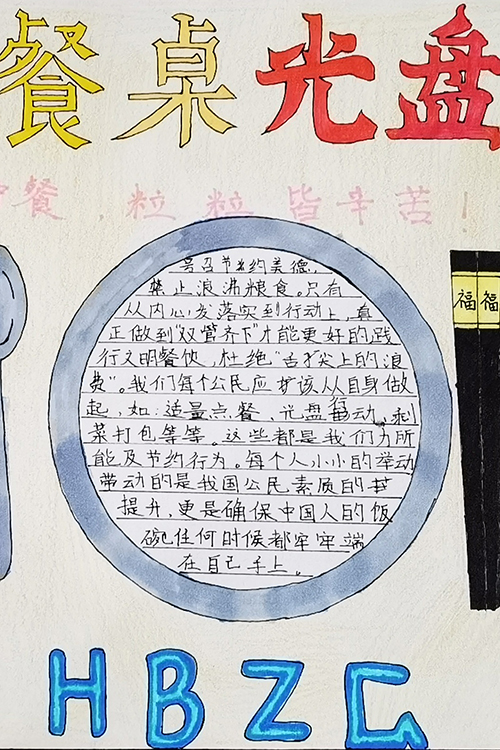 餐桌光盘
餐，粒粒皆辛苦！
号召节约美德，
禁止浪沸粮食。只有
从内心发落实到行动上，真
正做到“双管齐下”才能更好的践
行文明餐饮，杜绝“舌尖上的浪
费”。我们每个公民应该从自身做
起，如：适量点餐、光盘行动、剩
菜打包等等。这些都是我们力所
能及节约行为。每个人小小的举动
带动的是我国公民素质的
提升，更是确保中国人的饭
碗任何时候都牢牢端
在自己手上。
福 福
HBZG